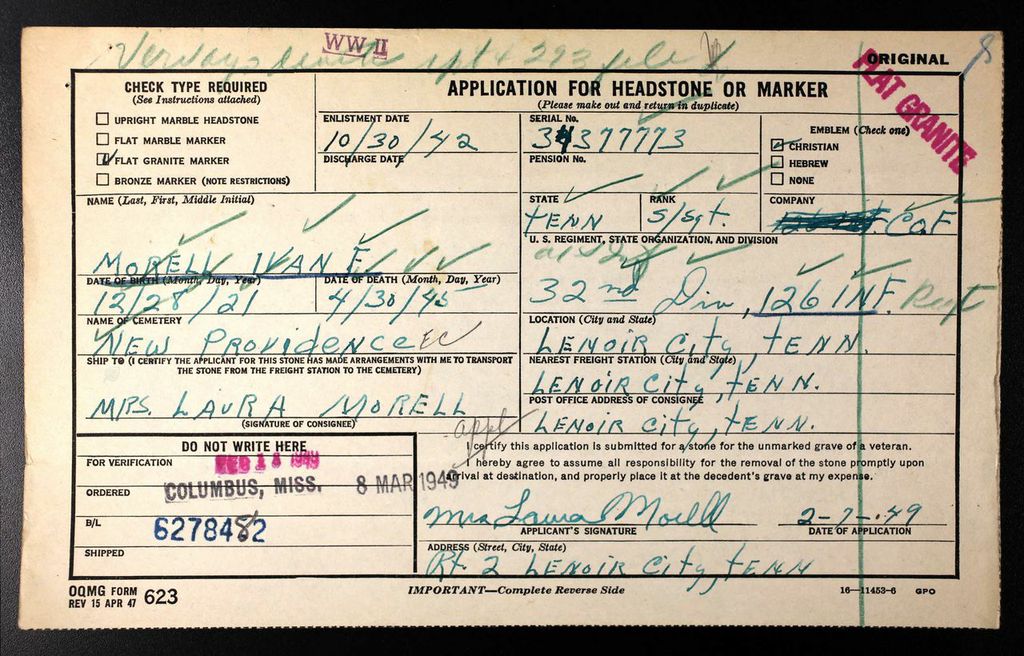 WW II
ORIGINAL
FLAT GRANITE
CHECK TYPE REQUIRED
(See Instructions attached)
UPRIGHT MARBLE HEADSTONE
FLAT MARBLE MARKER
FLAT GRANITE MARKER
BRONZE MARKER (NOTE RESTRICTIONS)
APPLICATION FOR HEADSTONE OR MARKER
(Please make out and return in duplicate)
ENLISTMENT DATE
10/30/42
DISCHARGE DATE
SERIAL No.
34377773
PENSION No.
EMBLEM (Check one)
CHRISTIAN
HEBREW
NONE
NAME (Last, First, Middle Initial)
MORELL IVAN F.
STATE
TENN
RANK
S/Sgt.
COMPANY
Co F
U. S. REGIMENT, STATE ORGANIZATION, AND DIVISION
32nd Div, 126 INF. Regt
DATE OF BIRTH (Month, Day, Year)
12/28/21
DATE OF DEATH (Month, Day, Year)
4/30/45
NAME OF CEMETERY
NEW PROVIDENCE
LOCATION (City and State)
LENOIR City, TENN.
SHIP TO (I CERTIFY THE APPLICANT FOR THIS STONE HAS MADE ARRANGEMENTS WITH ME TO TRANSPORT
THE STONE FROM THE FREIGHT STATION TO THE CEMETERY)
MRS. LAURA MORELL
(SIGNATURE OF CONSIGNEE)
NEAREST FREIGHT STATION (City and State)
LENOIR City, TENN.
POST OFFICE ADDRESS OF CONSIGNEE
LENOIR City, TENN.
appl
DO NOT WRITE HERE
FOR VERIFICATION
ORDERED
COLUMBUS, MISS. 8 MAR 1949
B/L
6278482
SHIPPED
I certify this application is submitted for a stone for the unmarked grave of a veteran.
I hereby agree to assume all responsibility for the removal of the stone promptly upon
arrival at destination, and properly place it at the decedent's grave at my expense.
Mrs Laura Morell
APPLICANT'S SIGNATURE
2-7-49
DATE OF APPLICATION
ADDRESS (Street, City, State)
Rt. 2 LENOIR City, TENN
OQMG FORM 623
REV 15 APR 47
IMPORTANT—Complete Reverse Side
16—11453-6 GPO